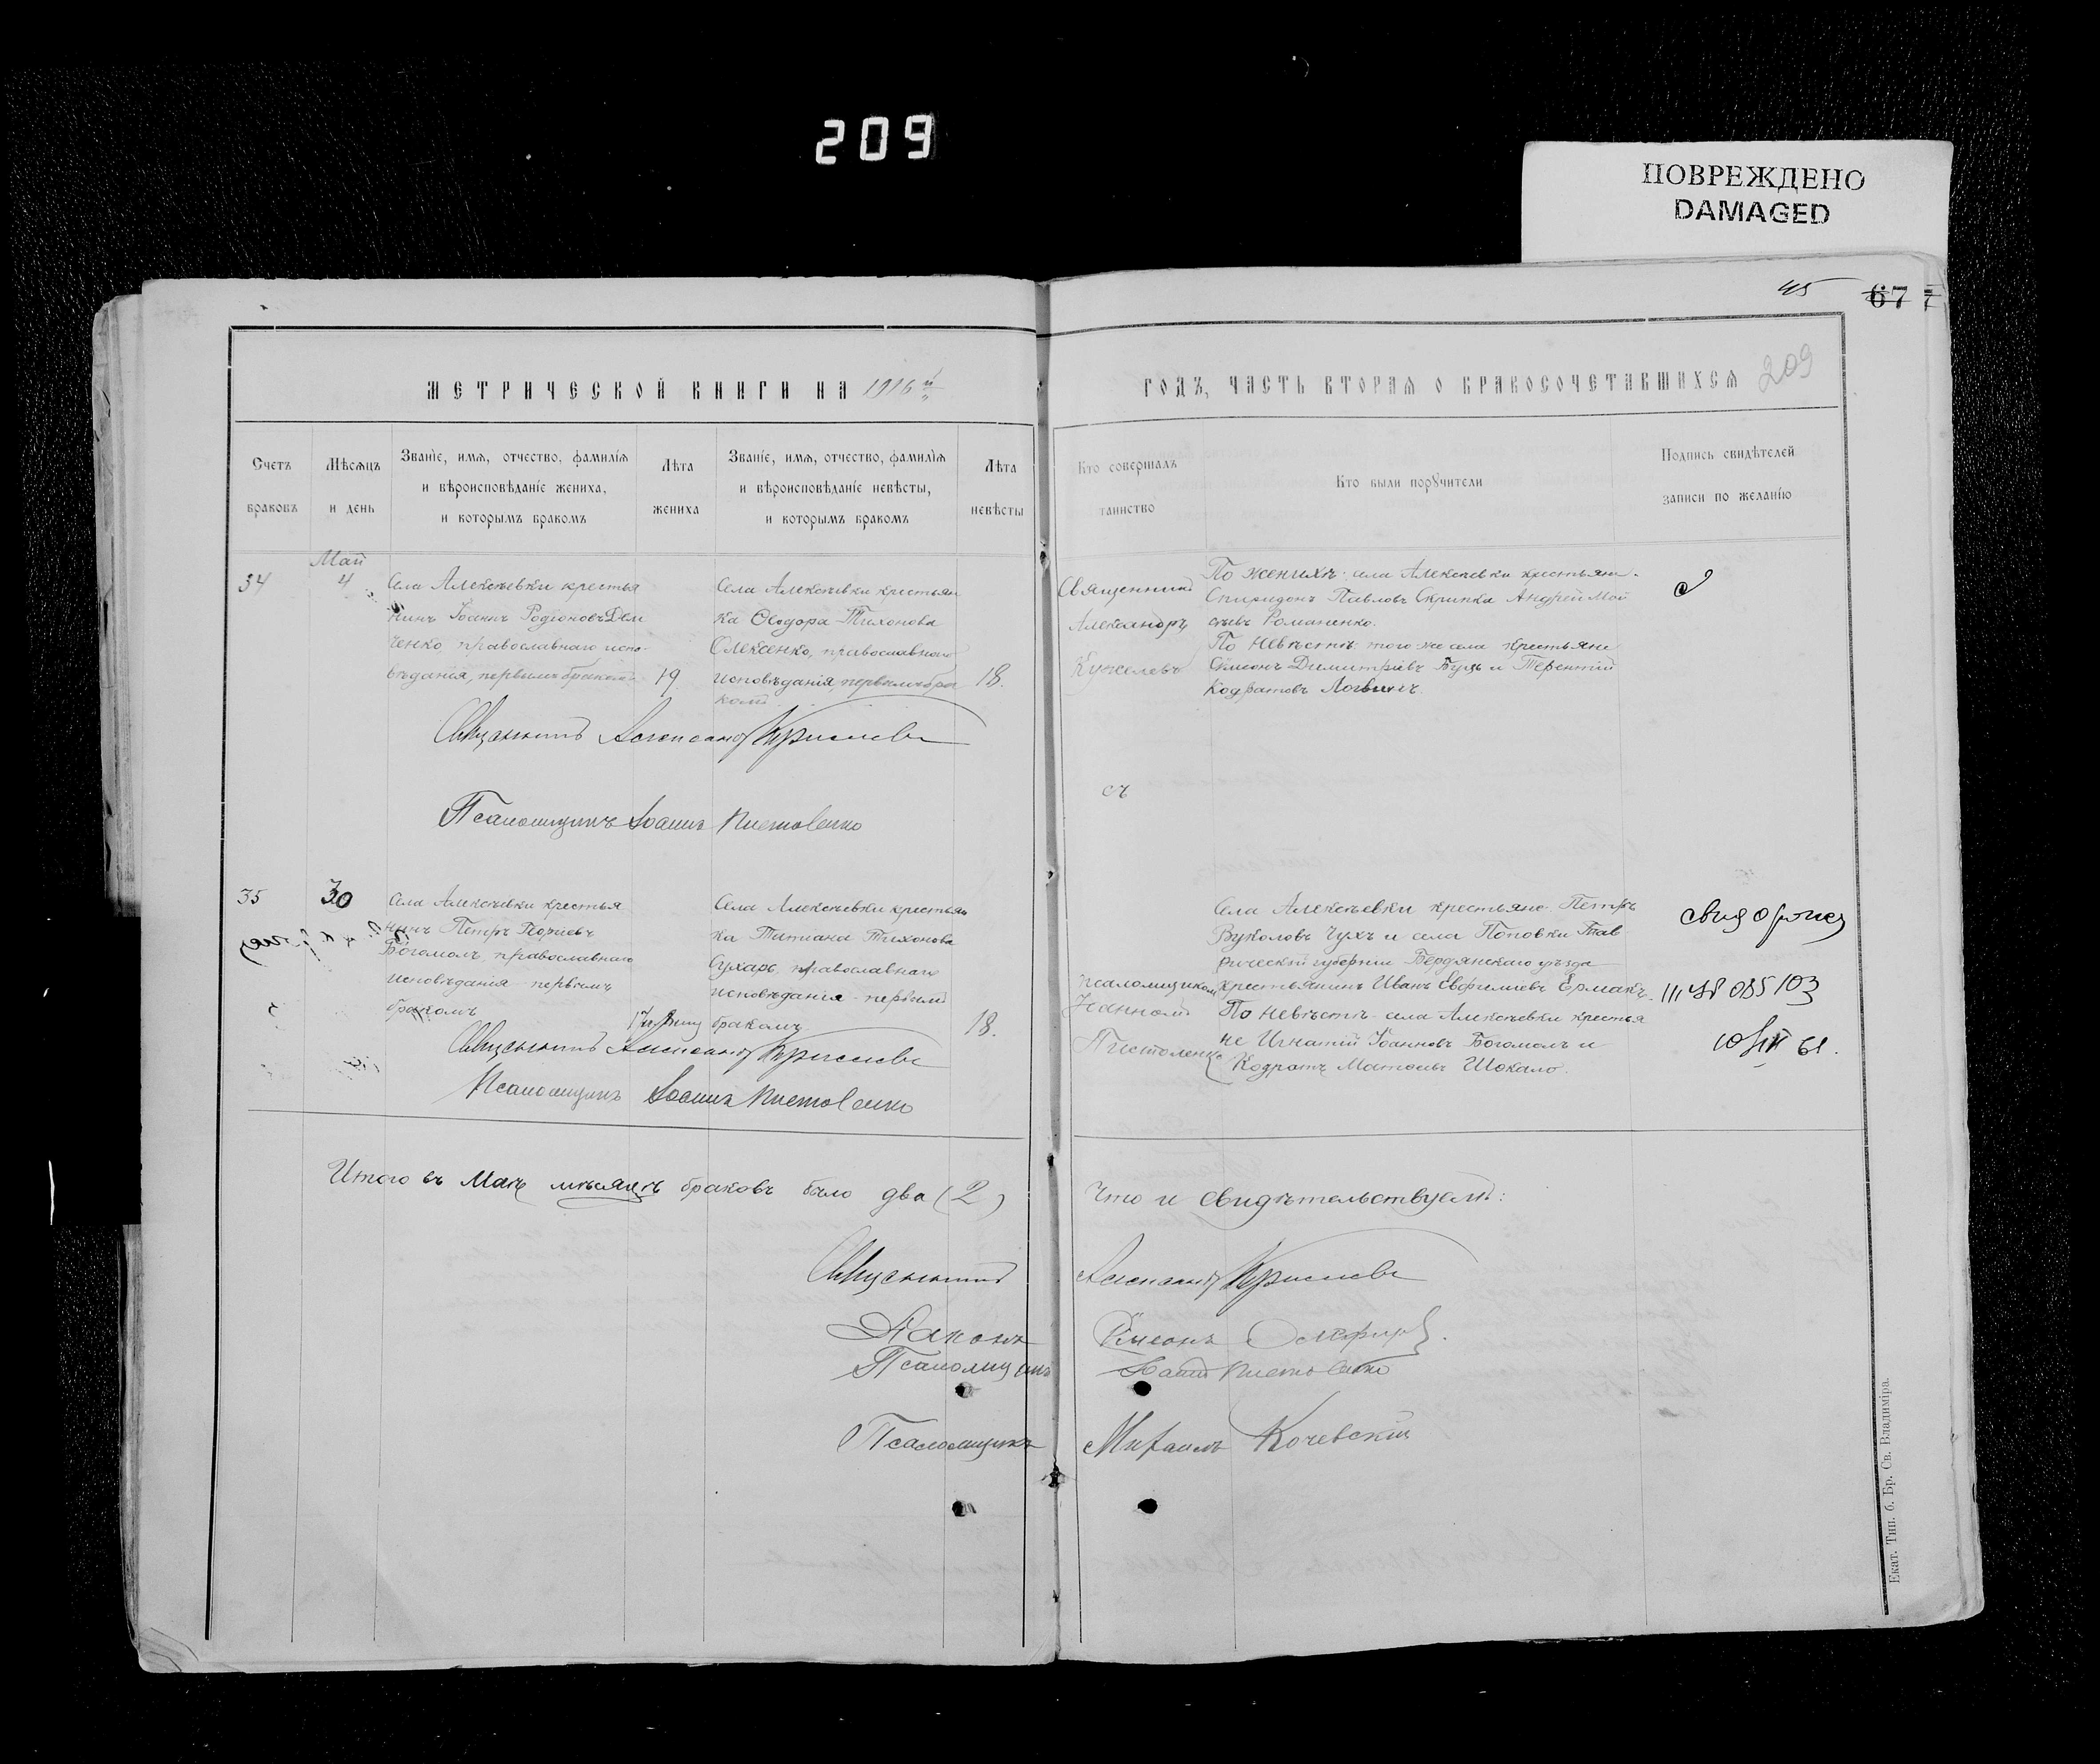 209
ПОВРЕЖДЕНО
DAMAGED
45
67
7
209
МЕТРИЧЕСКОЙ КНИГИ НА 1916 й
ГОДЪ, ЧАСТЬ ВТОРАЯ О БРАКОСОЧЕТАВШИХСЯ
Счетъ
браковъ
Мѣсяцъ
и день
Званіе, имя, отчество, фамилія
и вѣроисповѣданіе жениха,
и которымъ бракомъ
Лѣта
жениха
Званіе, имя, отчество, фамилія
и вѣроисповѣданіе невѣсты,
и которымъ бракомъ
Лѣта
невѣсты
Кто совершалъ
таинство
Кто были поручители
Подпись свидѣтелей
записи по желанію
34
Май
4
Села Алексѣевки крестья
нинъ Іоаннъ Родіоновъ Дем
ченко, православнаго испо-
вѣданія, первымъ бракомъ
19
Села Алексѣевки крестьян
ка Ѳеодора Тихонова
Олексенко, православнаго
исповѣданія, первымъ бра
комъ
18.
Священникъ
Александръ
По женихѣ: села Алексѣевки крестьяне
Спиридонъ Павловъ Скрипка Андрей Мой
сѣевъ Романенко.
По невѣстѣ: того же села крестьяне
Симеонъ Димитріевъ Буць и Терентій
Кодратовъ Логвинъ.
Священникъ
Псаломщикъ Іоаннъ Пистоленко
съ
35
30
Села Алексѣевки крестья
нинъ Петръ
Богомолъ, православнаго
исповѣданія первымъ
бракомъ
Села Алексѣевки крестьян
ка Татіана Тихонова
Сухарь, православнаго
исповѣданія первымъ
бракомъ
18.
псаломщикомъ
Іоанномъ
Пистоленко
Села Алексѣевки крестьяне Петръ
Вуколовъ Чухъ и села Поповки Тав
рической губерніи Бердянскаго уѣзда
крестьянинъ Иванъ Евфиміевъ Ермакъ.
По невѣстѣ села Алексѣевки крестья
не Игнатій Іоанновъ Богомолъ и
Кодратъ Матѳеевъ Шокало.
085103
61.
Священникъ
Псаломщикъ Іоаннъ Пистоленко
Итого въ Маѣ мѣсяцѣ браковъ было два (2)
Что и свидѣтельствуемъ:
Священникъ
Діаконъ Симеонъ
Псаломщикъ Іоаннъ Пистоленко
Псаломщикъ Михаилъ Кочевскій
Екат. Тип. б. Бр. Св. Владиміра.